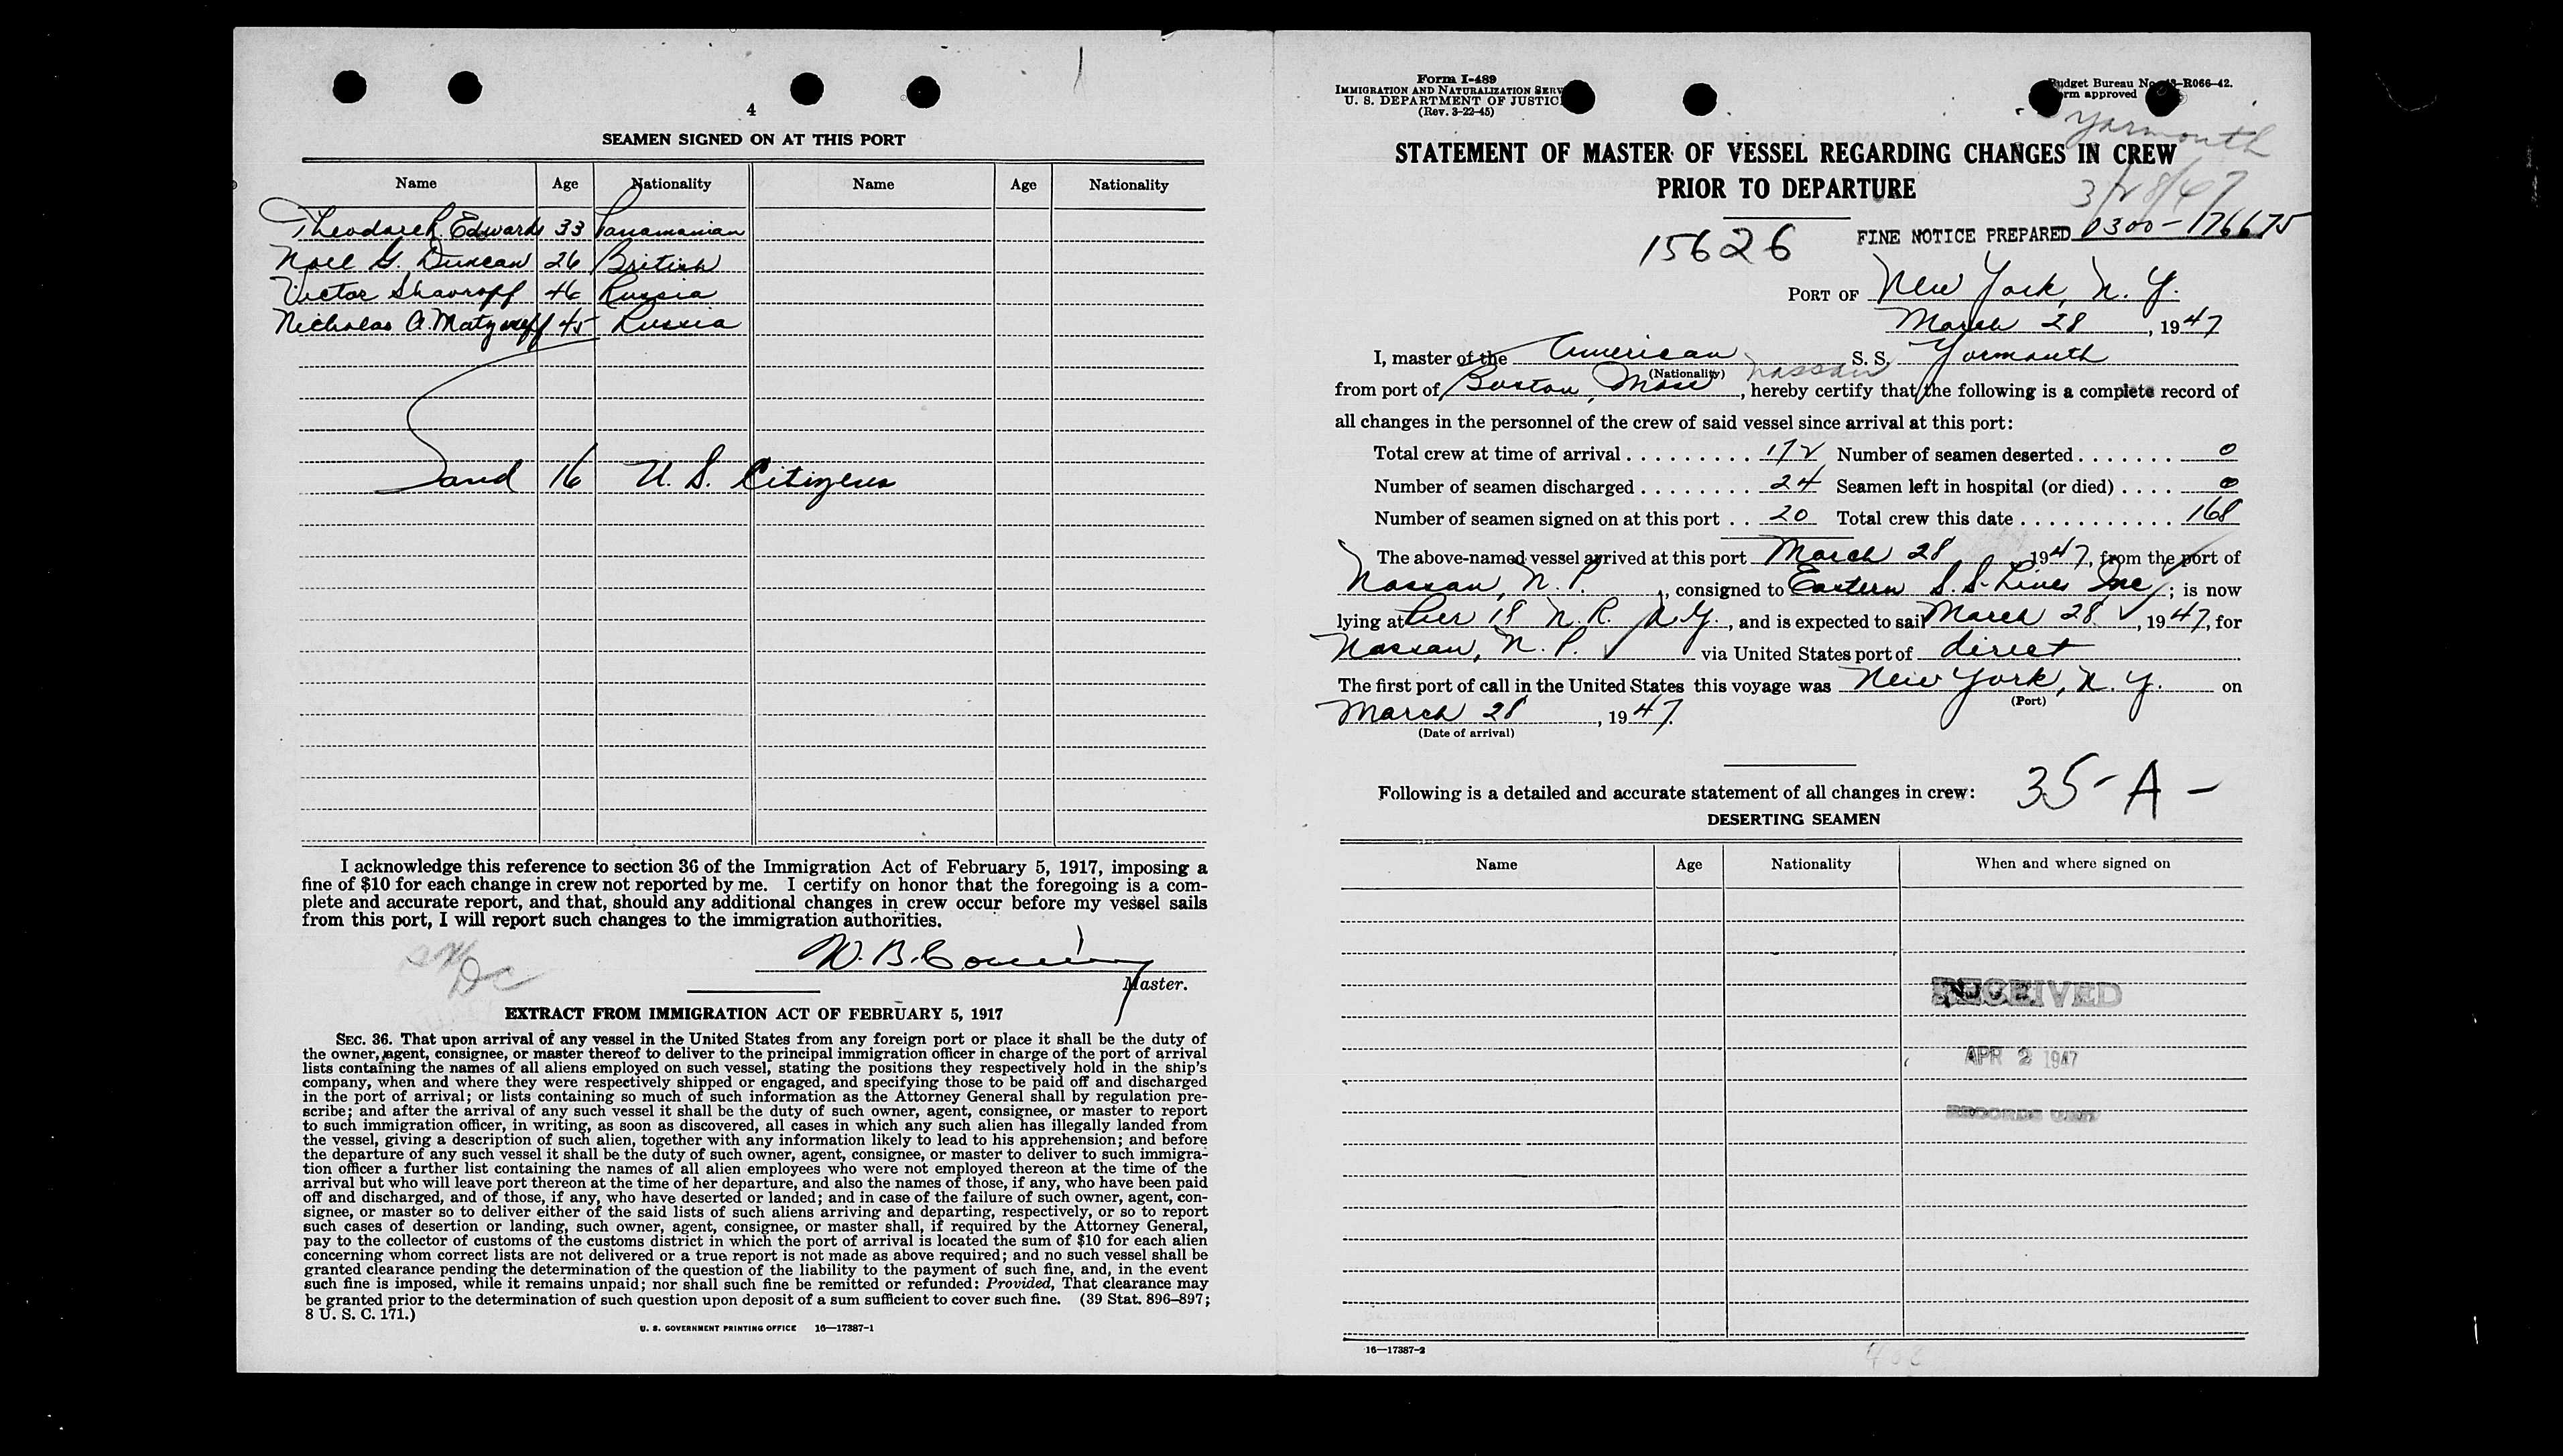 4
SEAMEN SIGNED ON AT THIS PORT
Name Age Nationality Name Age Nationality
Theodore R. Edwards 33 Panamanian
Noel G. Duncan 26 British
Victor Shavroff 46 Russia
Nicholas A. 45 Russia
and 16 U. S. Citizens
I acknowledge this reference to section 36 of the Immigration Act of February 5, 1917, imposing a
fine of $10 for each change in crew not reported by me. I certify on honor that the foregoing is a com-
plete and accurate report, and that, should any additional changes in crew occur before my vessel sails
from this port, I will report such changes to the immigration authorities.
W. B.
Master.
EXTRACT FROM IMMIGRATION ACT OF FEBRUARY 5, 1917
SEC. 36. That upon arrival of any vessel in the United States from any foreign port or place it shall be the duty of
the owner, agent, consignee, or master thereof to deliver to the principal immigration officer in charge of the port of arrival
lists containing the names of all aliens employed on such vessel, stating the positions they respectively hold in the ship's
company, when and where they were respectively shipped or engaged, and specifying those to be paid off and discharged
in the port of arrival; or lists containing so much of such information as the Attorney General shall by regulation pre-
scribe; and after the arrival of any such vessel it shall be the duty of such owner, agent, consignee, or master to report
to such immigration officer, in writing, as soon as discovered, all cases in which any such alien has illegally landed from
the vessel, giving a description of such alien, together with any information likely to lead to his apprehension; and before
the departure of any such vessel it shall be the duty of such owner, agent, consignee, or master to deliver to such immigra-
tion officer a further list containing the names of all alien employees who were not employed thereon at the time of the
arrival but who will leave port thereon at the time of her departure, and also the names of those, if any, who have been paid
off and discharged, and of those, if any, who have deserted or landed; and in case of the failure of such owner, agent, con-
signee, or master so to deliver either of the said lists of such aliens arriving and departing, respectively, or so to report
such cases of desertion or landing, such owner, agent, consignee, or master shall, if required by the Attorney General,
pay to the collector of customs of the customs district in which the port of arrival is located the sum of $10 for each alien
concerning whom correct lists are not delivered or a true report is not made as above required; and no such vessel shall be
granted clearance pending the determination of the question of the liability to the payment of such fine, and, in the event
such fine is imposed, while it remains unpaid; nor shall such fine be remitted or refunded: Provided, That clearance may
be granted prior to the determination of such question upon deposit of a sum sufficient to cover such fine. (39 Stat. 896–897;
8 U. S. C. 171.)
U. S. GOVERNMENT PRINTING OFFICE 16—17387-1
Form I-489
IMMIGRATION AND NATURALIZATION SERV
U. S. DEPARTMENT OF JUSTIC
(Rev. 3-22-45)
Budget Bureau No. 43-R066-42.
Form approved
Yarmouth
3/28/47
STATEMENT OF MASTER OF VESSEL REGARDING CHANGES IN CREW
PRIOR TO DEPARTURE
15626
FINE NOTICE PREPARED 0300-176675
PORT OF New York, N. Y.
March 28, 1947
I, master of the American S. S. Yarmouth
(Nationality) Nassau
from port of Boston, Mass, hereby certify that the following is a complete record of
all changes in the personnel of the crew of said vessel since arrival at this port:
Total crew at time of arrival 172 Number of seamen deserted 0
Number of seamen discharged 24 Seamen left in hospital (or died) 0
Number of seamen signed on at this port 20 Total crew this date 168
The above-named vessel arrived at this port March 28 1947, from the port of
Nassau, N. P., consigned to Eastern S. S. Lines Inc; is now
lying at Pier 18 N. R. N.Y., and is expected to sail March 28, 1947, for
Nassau, N. P. via United States port of direct
The first port of call in the United States this voyage was New York, N. Y. on
(Port)
March 28, 1947.
(Date of arrival)
Following is a detailed and accurate statement of all changes in crew: 35-A-
DESERTING SEAMEN
Name Age Nationality When and where signed on
RECEIVED
APR 2 1947
RECORDS UNIT
16—17387-2